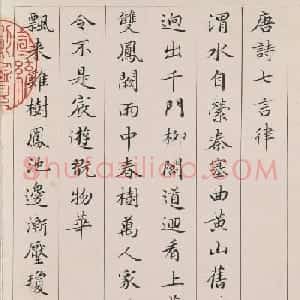 唐詩七言律
渭水自縈秦塞曲黃山舊
迥出千門柳閣道迴看上
雙鳳闕雨中春樹萬人家
令不是宸遊翫物華
飄来雞樹鳳池邊漸壓瓊
Shufaziliao.com